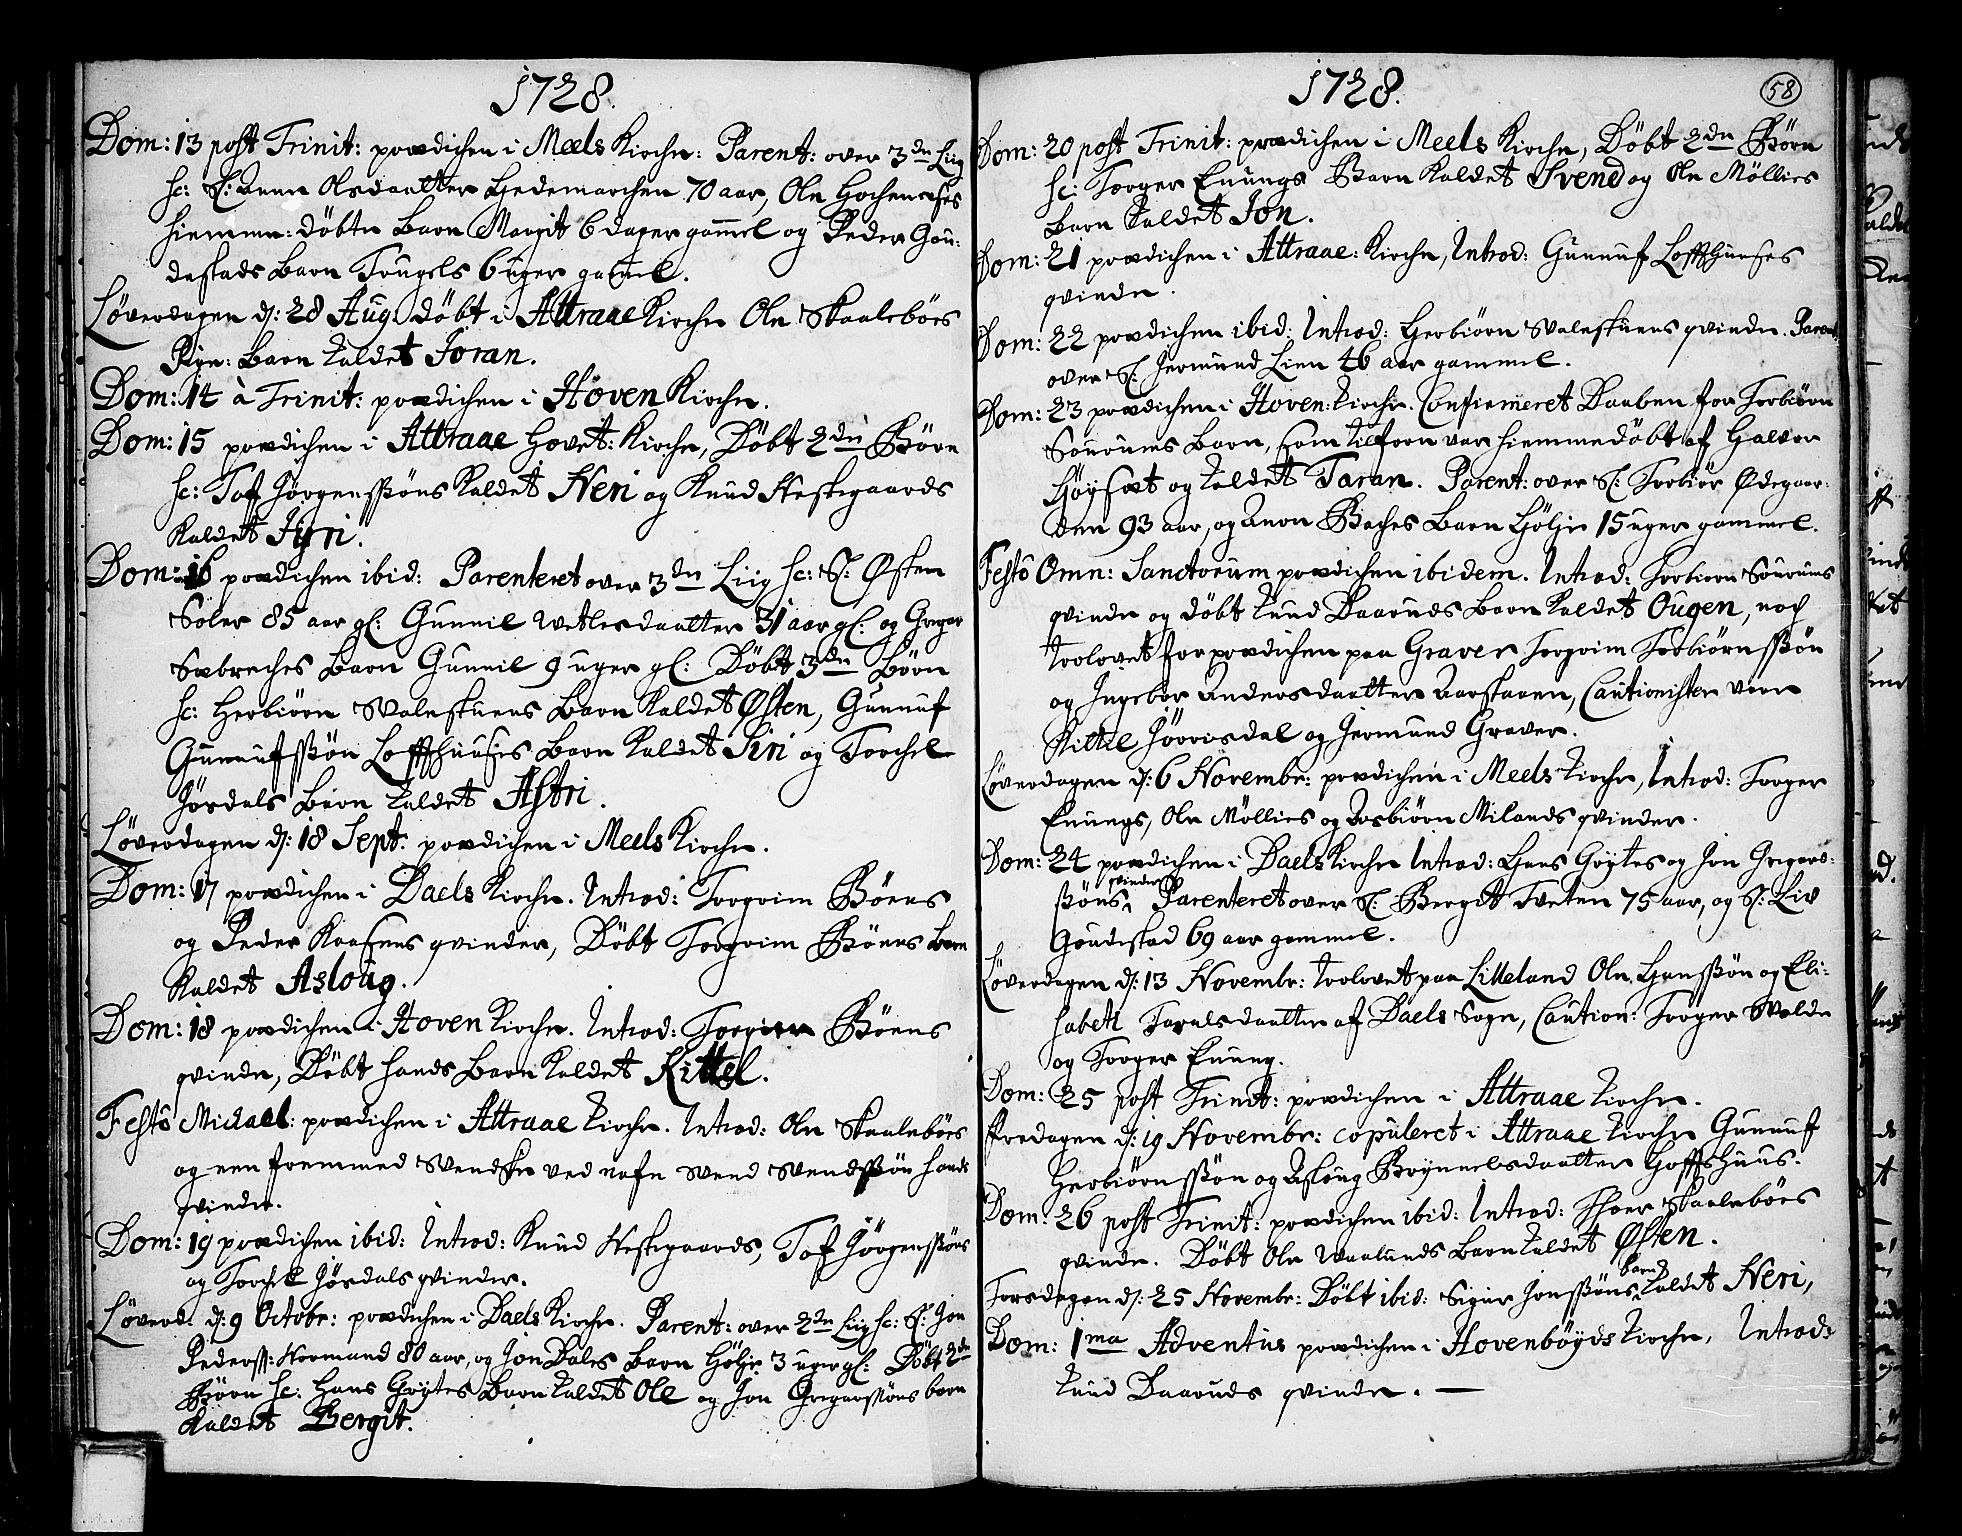 1728.
Dom: 13 post Trinit: prædichen i Meels Kirche: Parent: over 3de Liig
sc: S: Anne Olsdaatter Hedemarchen 70 aar, Ole
hiemme: døbte Barn Margit 6 dager gammel og Peder Gou-
destads Barn Tougels 6 uger gammel.
Løverdagen d: 28 Aug. døbt i Attraae Kirche Ole Skaalebøes
Pige: Barn kaldet Joran.
Dom: 14 à Trinit: prædichen i Höven Kirche.
Dom: 15 prædichen i Attraae Hovet: Kirche, Døbt 2de Børn
sc: Tof Jørgenssøns kaldet Neri og Knud Neskegaards
kaldet Jyri.
Dom: 16 prædichen ibid: Parenteret over 3de Liig sc: S: Østen
Søler 85 aar gl: Gunnil Wetlesdaatter 31 aar gl: og Gregar
Sæbreches Barn Gunnil 9 uger gl: Døbt 3de Børn
sc: Herbiørn Waleskuens Barn kaldet Østen, Gunnuf
Gunnufssøn Loffthuuses Barn kaldet Siri og Torchel
Jørdals Barn kaldet Astri.
Løverdagen d: 18 Sept: prædichen i Meels Kirche.
Dom: 17 prædichen i Daels Kirche. Introd: Torgrim Böens
og Peder Kaasens qvinder, Døbt Torgrim Böens Barn
kaldet Asloug.
Dom: 18 prædichen i Hoven Kirche. Introd: Böens
qvinde, Døbt hands Barn kaldet Kittel.
Festo Michael: prædichen i Attraae Kirche. Introd: Ole Skaalebøes
og een fremmed Svendske ved nafn Svend Svendssøn hands
qvinde.
Dom: 19 prædichen ibid: Introd: Knud Neskegaards, Tof Jørgenssøns
og Torchel Jørdals qvinder.
Løverd: d: 9 Octobr: prædichen i Daels Kirche. Parent: over 2de Liig sc: S: Jon
Pederss: Normand 80 aar, og Jon Dales Barn Hölje 3 uger gl: Døbt 2de
Børn sc: Hans Gøytes Barn kaldet Ole og Jon Gregarssøns barn
kaldet Bergit.
1728.
58
Dom: 20 post Trinit: prædichen i Meels Kirche, Döbt 2de Börn
sc: Torger Enungs Barn kaldet Svend og Ole Möllies
Barn kaldet Jon.
Dom: 21 prædichen i Attraae: Kirche, Introd: Gunnuf Loffthuuses
qvinde.
Dom: 22 prædichen ibid: Introd: Herbiørn Waleskuens qvinde. Parent:
over S: Jermund Lien 46 aar gammel.
Dom: 23 prædichen i Hoven: Kirche. Confirmeret Daaben for Torbiörn
Sourums Barn, som tilforn var hiemmedøbt af Halvor
Høysæt og kaldet Taran. Parent: over S: Torbiør Ødegaar-
den 93 aar, og Anon Baches Barn Hölje 15 uger gammel.
Festo Omn: Sanctorum prædichen ibidem. Introd: Torbiørn Sourums
qvinde og døbt Knud Baaruds Barn kaldet Ougen, noch
trolovet for prædichen paa Graver Torgrim Torbiørnssøn
og Ingebor Andersdaatter Aarskaaen, Cautionister vare
Kittil Jörrisdal og Jermund Graver.
Løverdagen d: 6 Novembr: prædichen i Meels Kirche, Introd: Torger
Enungs, Ole Möllies og Aasbiørn Milands qvinder.
Dom: 24 prædichen i Daels Kirche Introd: Hans Gøytes og Jon Gregars-
ssöns qvinder. Parenteret over S: Bergit Tveten 75 aar, og S: Liv
Goudestad 69 aar gammel.
Løverdagen d: 13 Novembr: trolovet paa Litteland Ole Hanssøn og Eli-
sabeth Tarelsdaatter af Daels Sogn, Caution: Torger Wolde
og Torger Enung.
Dom: 25 post Trinit: prædichen i Attraae Kirche.
Fredagen d: 19 Novembr: copuleret i Attraae Kirche Gunnuf
Herbiørnssøn og Asloug Brynnelsdaatter
Dom: 26 post Trinit: prædichen ibid: Introd: Thoer Skaalebøes
qvinde. Døbt Ole Waalunds Barn kaldet Østen.
Torsdagen d: 25 Novembr: Döbt ibid: Sigur Jonssøns barn kaldet Neri,
Dom: 1ma Adventus prædichen i Hovenbøyds Kirche, Introd:
Knud Baaruds qvinde. —